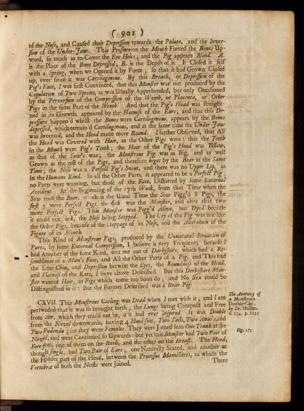 ( 901 )
of the Nose, and Caused their Depression towards the Palate, and the Inversion of the Under-Jaw. This Pressure on the Mouth Forced the Bones Upward, so much as to Cover the Eye Holes; and the Pig appears Blind. A.
is the Place of the Bone Depressed, B. is the Depth of it. It Closed it self
with a Spring, when we Opened it by Force; so that it had Grown Closed
up, ever since it was Cartilagenous. By this Breach, or Depression of the
Pig's Face, I was first Convinced, that this Monster was not produced by the
Copulation of Two Species, as was Usually Apprehended, but only Occasioned
by the Perversion of the Compression of the Womb, or Placenta, or Other
Pigs in the same Part of the Womb. And that the Pig's Head was Streightned in its Growth, appeared by the Flatness of the Ears; and that this Depression happened whilst the Bones were Cartilagenous, appears by the Bones
depressed,
was Inverted, and the Head made more Round. I farther Observed, that All
the Head was Covered with Hair, as the Other Pigs were; that the Teeth
in the Mouth were Pig's Teeth; the Hair of the Pig's Head was Yellow,
as that of the Sow's was; the Monstrous Pig was as Big, and as well
Grown as the rest of the Pigs, and therefore begot by the Boar at the same
Time; the Nose was a Perfect Pig's Snout, and there was no Upper Lip, as
in the Humane Kind. In all the Other Parts, it appeared to be a Perfect Pig;
no Parts were wanting, but those of the Face, Distorted by some Extreme
Accident. At the Beginning of the
Sow took the Boar,
first 3 were Perfect Pigs, the
more Perfect Pigs. This Monster was Pigg'd Alive, but Dyed because
it could not suck, the Nose being Stopped. The Cry of the Pig was not like
the Other Pigs, because of the Stoppage of its Nose, and the Alteration of the
Figure of its Mouth.
This Kind of Monstrous Pigs, produced by the Unnatural Situation of
Parts, by some External Compression, I believe is very Frequent, because I
had Another of the same Kind, sent me out of Derbyshire, which had a Resemblance of a Man's Face, and All the Other Parts of a Pig, and This had
the Like Chin, and Depression betwixt the Eyes, the Roundness of the Head,
and Flatness of the Ears, I have above Described. But this Derbyshire Monster wanted Hair, as Pigs which come too soon do; and No Sex could be
Distinguished in it: But the Former described was a Boar Pig.
CXVII. This Monstrous Catling was Dead when I met with it; and I am
perswaded that it was so brought forth; the Lungs being Compact and Free
from Air, which they could not be, if it had ever Inspired. It was Double
from the Navel downwards, having 4 Hind feet, Two Tails, Two Anus's, and
Two Pudenda; for they were Females. They were Joined into One Trunk at the
Navel, and were Continued so Upwards: but yet this Monster had Two Pair of
Fore-feet, one of them on the Back, and the other on the Breast. The Head,
though single, had Two Pair of Ears; one Naturally Seated, and another at
the Hinder part of the Head, between the Processus Mamillares, to which the
Vertebræ of both the Necks were Joined.
There
The Anatomy of
a Monstrous